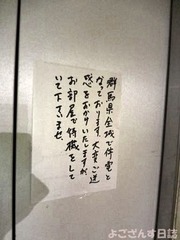 群馬県全域で停電と
なっております。大変ご迷
惑をおかけいたしますが、
お部屋で待機をして
いて下さいませ。
よござんす日誌